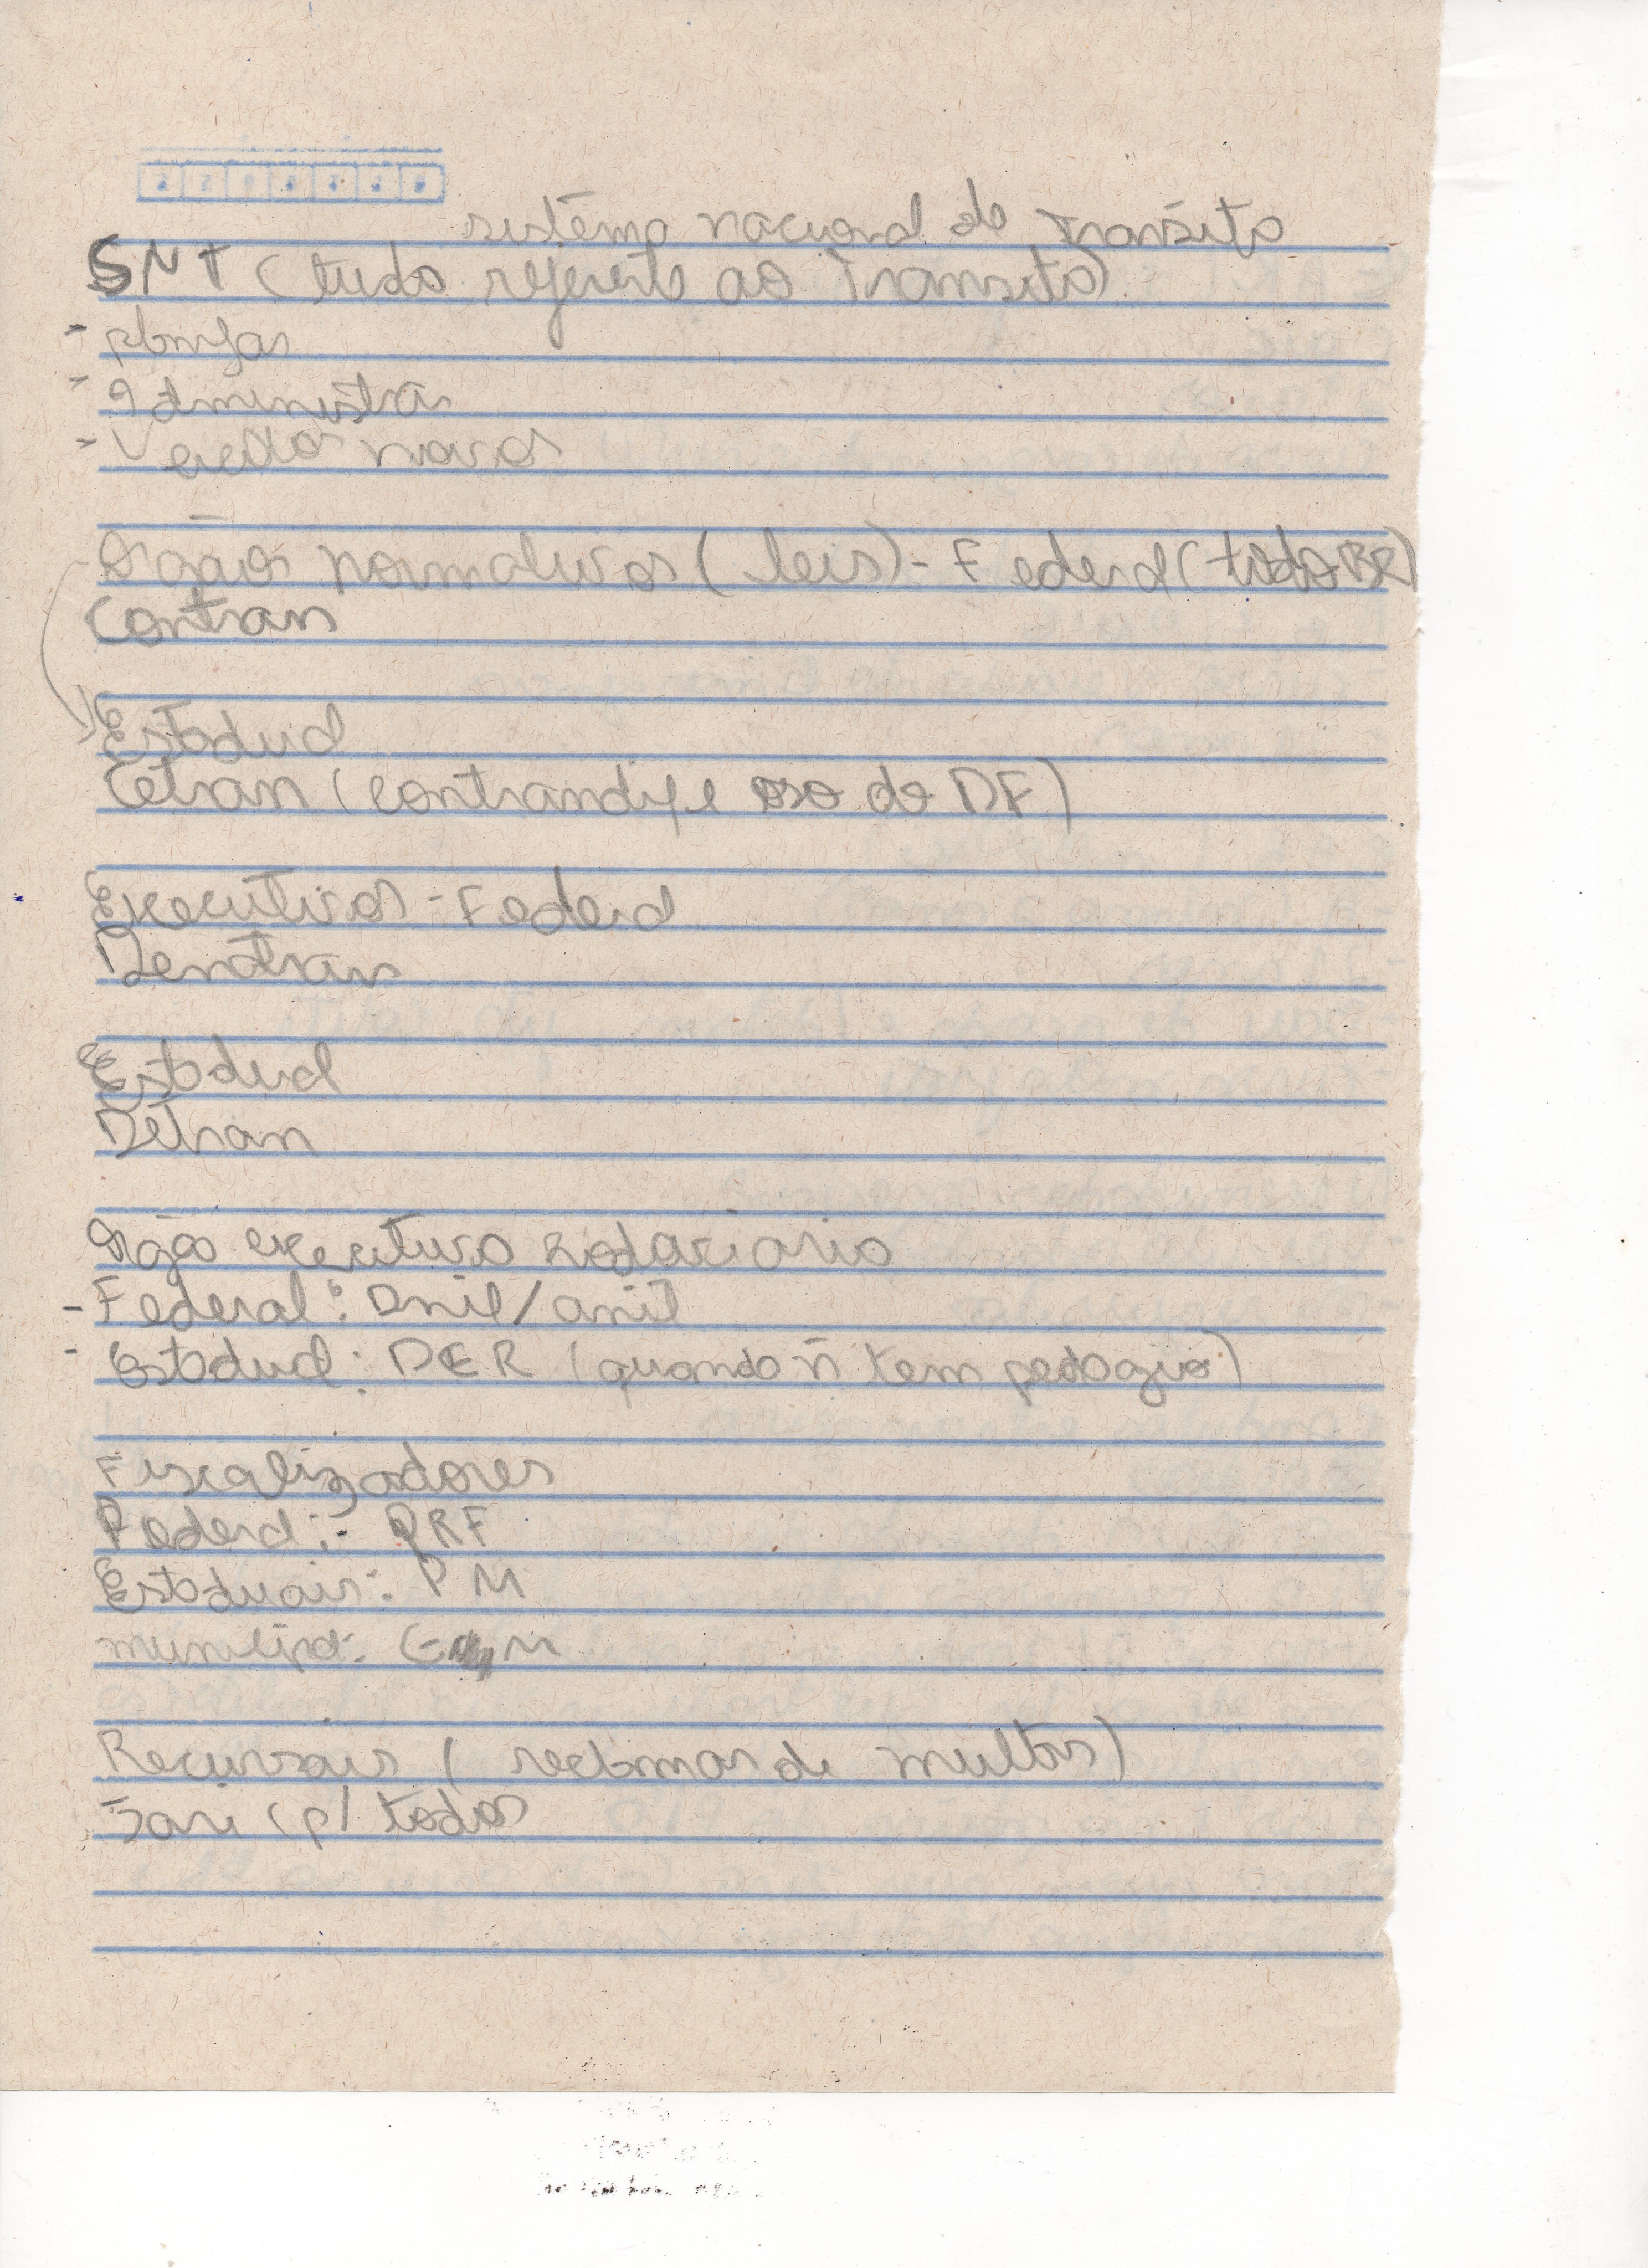 sistema nacional de Transito
SNT (tudo referente ao Transito)
- planejar
- Administra
-
Orgãos normativos (leis) - Federal (todo BR)
Contran
Estadual
Cetran (contrandife so de DF)
Executivos - Federal
Denatran
Estadual
Detran
Orgão executivo rodoviario
- Federal: Dnit/antt
- Estadual: DER (quando ñ tem pedagio)
Fiscalizadores
Federal: - PRF
Estaduais: PM
municipal: G M
Recursais (reclamar de multas)
Jari (p/ todos